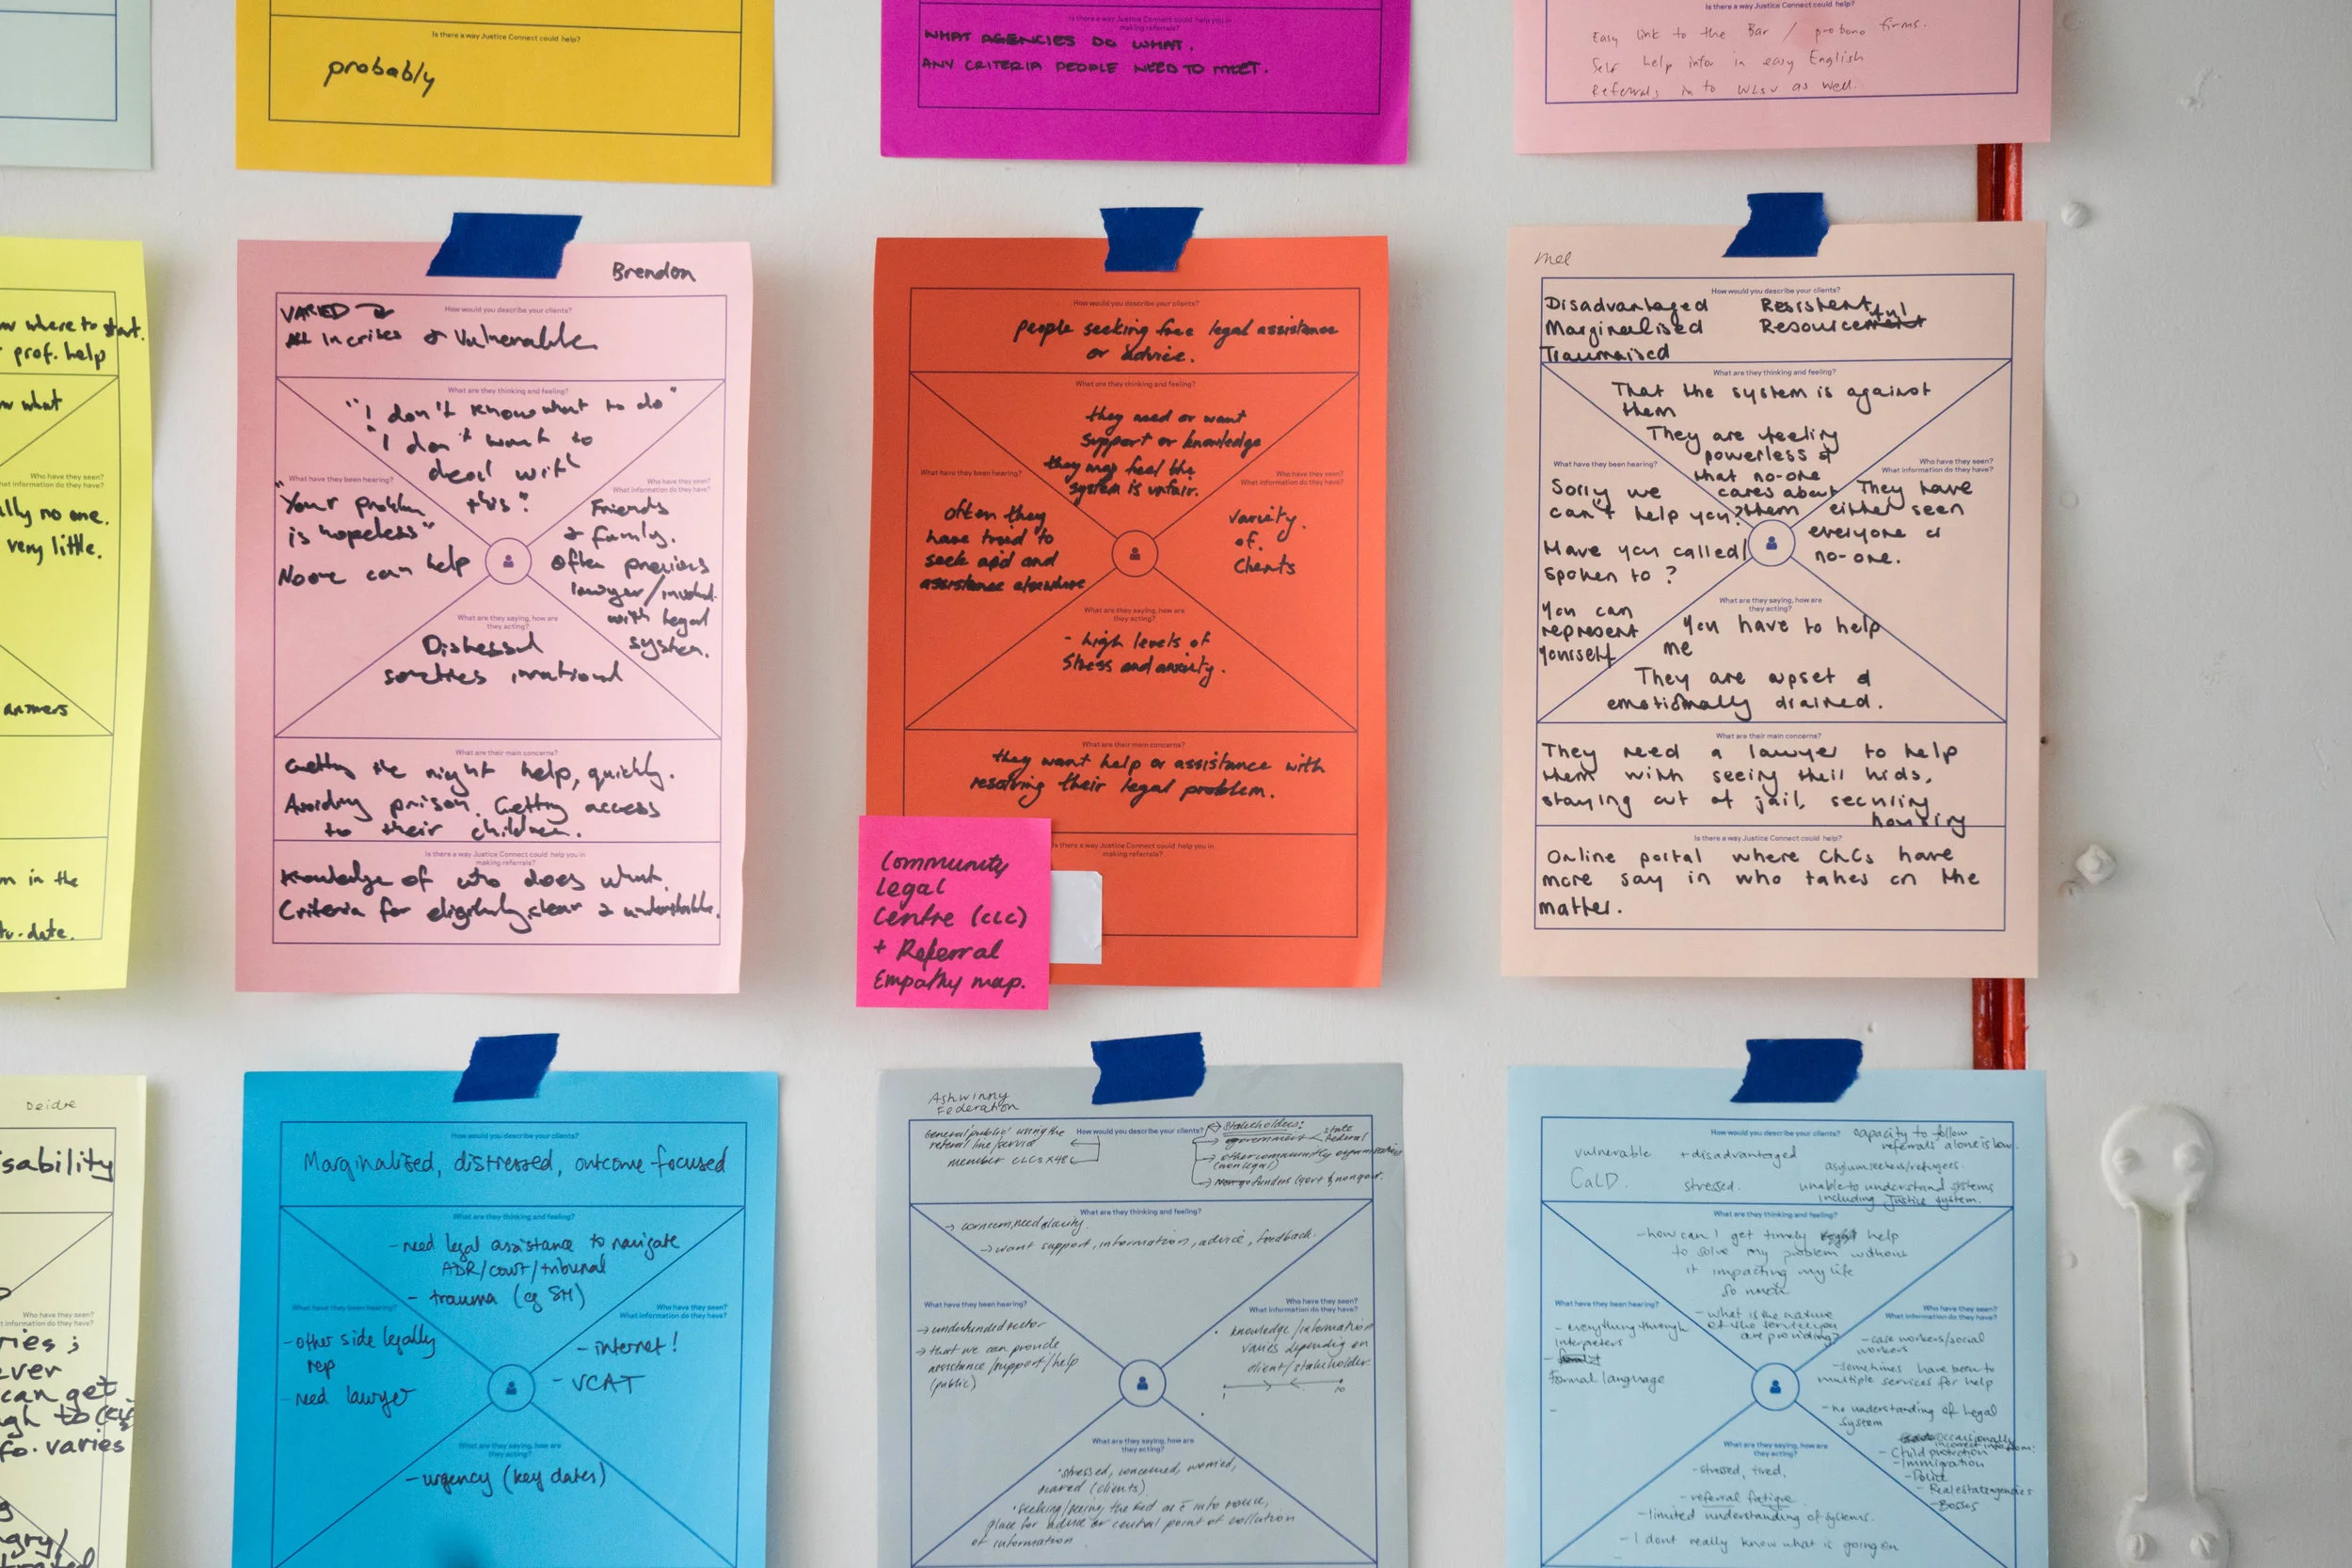 Is there a way Justice Connect could help?
probably
Is there a way Justice Connect could help you in
making referrals?
WHAT AGENCIES DO WHAT.
ANY CRITERIA PEOPLE NEED TO MEET.
Is there a way Justice Connect could help?
Easy link to the Bar / probono firms.
Self help info in easy English
Referrals in to WLSV as well.
where to start.
prof. help
what
Who have they seen?
What information do they have?
no one.
very little.
answers
in the
to-date.
Brendon
How would you describe your clients?
VARIED
All In crises & Vulnerable
What are they thinking and feeling?
"I don't know what to do"
"I don't want to
deal with
this."
What have they been hearing?
"Your problem
is hopeless"
No one can help
Who have they seen?
What information do they have?
Friends
& family.
Often previous
lawyer/involved
with legal
system.
What are they saying, how are
they acting?
Distressed
sometimes irrational
What are their main concerns?
Getting the right help, quickly.
Avoiding prison. Getting access
to their children.
Is there a way Justice Connect could help you in
making referrals?
Knowledge of who does what.
Criteria for eligibility, clear & understandable.
How would you describe your clients?
people seeking free legal assistance
or advice.
What are they thinking and feeling?
they need or want
support or knowledge
they may feel the
system is unfair.
What have they been hearing?
often they
have tried to
seek aid and
assistance elsewhere
Who have they seen?
What information do they have?
variety
of
clients
What are they saying, how are
they acting?
- high levels of
stress and anxiety.
What are their main concerns?
they want help or assistance with
resolving their legal problem.
Is there a way Justice Connect could help you in
making referrals?
Community
Legal
Centre (CLC)
+ Referral
Empathy map.
Mel
How would you describe your clients?
Disadvantaged Resistent
Marginalised Resourceful
Traumaised
What are they thinking and feeling?
That the system is against
them
They are feeling
powerless &
that no-one
cares about
them
What have they been hearing?
Sorry we
can't help you?
Have you called/
spoken to?
You can
represent
yourself
Who have they seen?
What information do they have?
They have
either seen
everyone or
no-one.
What are they saying, how are
they acting?
You have to help
me
They are upset &
emotionally drained.
What are their main concerns?
They need a lawyer to help
them with seeing their kids,
staying out of jail, securing
housing
Is there a way Justice Connect could help?
Online portal where CLCs have
more say in who takes on the
matter.
Deidre
sability
Who have they seen?
What information do they have?
ries;
ever
can get
varies
How would you describe your clients?
Marginalised, distressed, outcome-focused
What are they thinking and feeling?
- need legal assistance to navigate
ADR/court/tribunal
- trauma (eg SH)
What have they been hearing?
- other side legally
rep
- need lawyer
Who have they seen?
What information do they have?
- internet!
- VCAT
What are they saying, how are
they acting?
- urgency (key dates)
Ashwinny
Federation
How would you describe your clients?
General 'public' using the
referral line/service
member CLCs x48
Stakeholders:
government
state
federal
other community organisations
(non legal)
funders (govt & nongovt.
What are they thinking and feeling?
→ concern, need clarity.
→ want support, information, advice, feedback.
What have they been hearing?
→ underfunded sector
→ that we can provide
assistance/support/help
(public)
Who have they seen?
What information do they have?
knowledge/information
varies depending on
client/stakeholder.
1 10
What are they saying, how are
they acting?
• stressed, concerned, worried,
scared (clients)
• seeking/seeing the Fed as info source,
place for advice or central point of collation
of information
How would you describe your clients?
vulnerable + disadvantaged
CaLD. stressed.
capacity to follow
referrals alone is low.
asylum seekers/refugees.
unable to understand systems
including Justice system.
What are they thinking and feeling?
- how can I get timely help
to solve my problem without
it impacting my life
so much
- what is the nature
of the service you
are providing?
What have they been hearing?
- everything through
interpreters
Formal language
Who have they seen?
What information do they have?
- case workers/social
workers
- sometimes have been to
multiple services for help
- no understanding of legal
system
occasionally
incorrect info from:
- Child protection
- Immigration
- Police
- Real estate agencies
- Bosses
What are they saying, how are
they acting?
- stressed, tired,
- referral fatigue
- limited understanding of systems.
- I dont really know what is going on